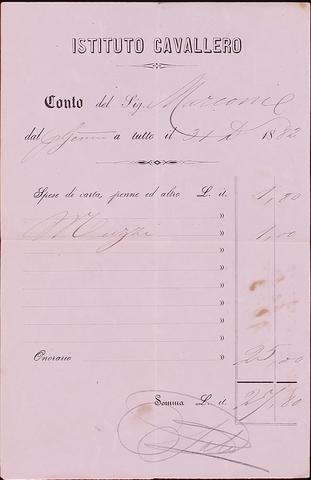 ISTITUTO CAVALLERO
Conto del Sig. Marconi
dal 1 Genn. a tutto il 31 D 1882
Spese di carta, penne ed altro L. it. 1,80
" 1,00
"
"
"
"
"
"
Onorario " 25,00
Somma L. it. 27,80